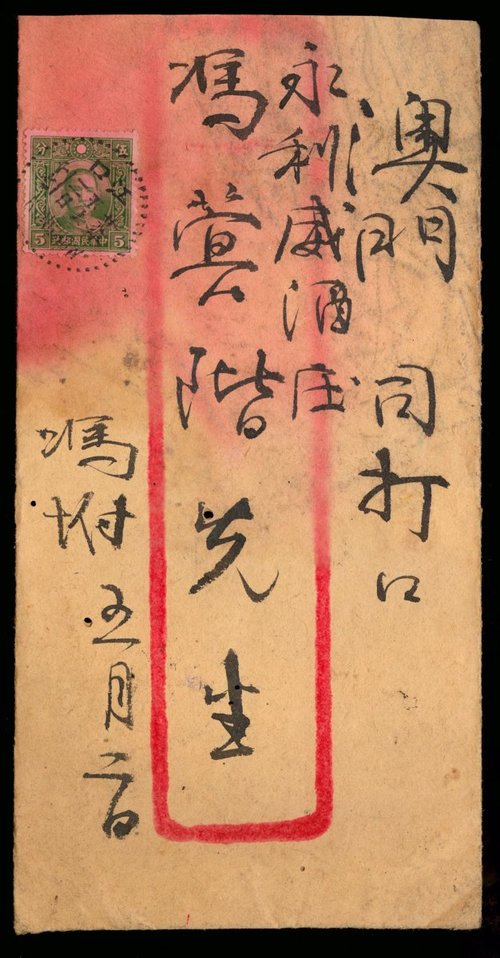 奧門 司打口
永利威酒庄
馮蓂階先生
馮坿 五月二日
伍分
5 中華民國郵政 5